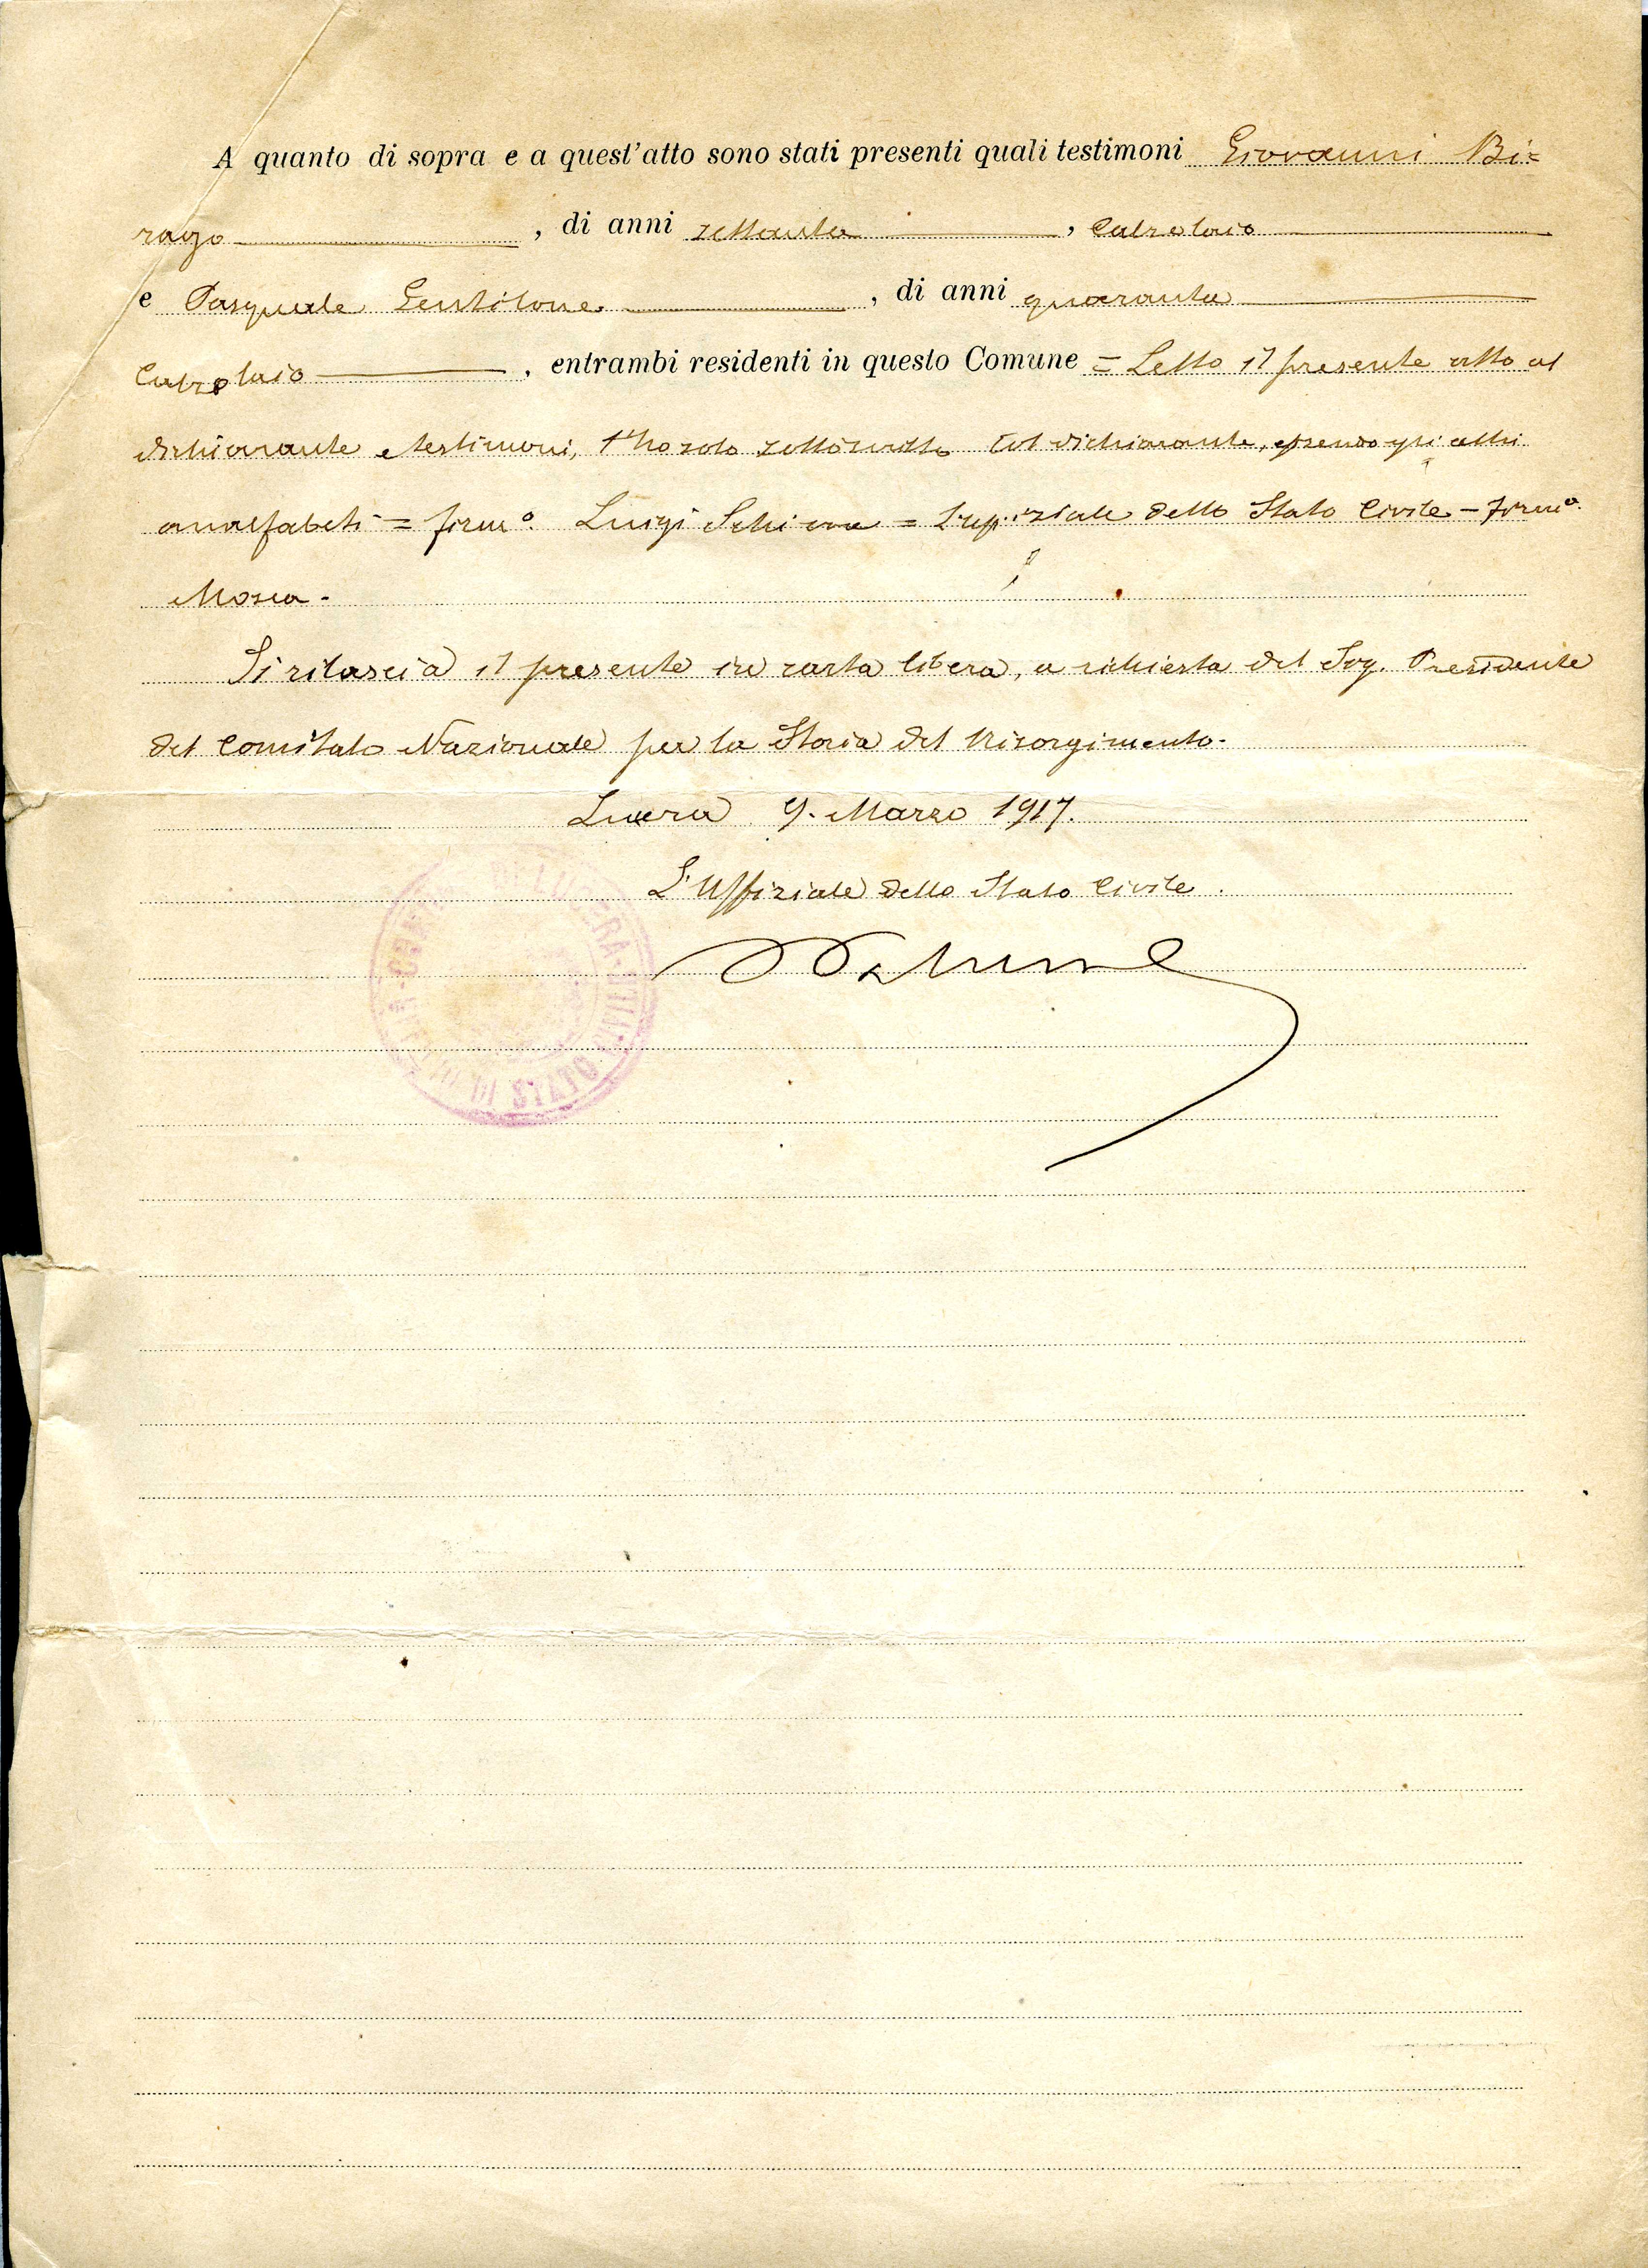 A quanto di sopra e a quest'atto sono stati presenti quali testimoni Giovanni Bi=
rago, di anni settanta, Calzolaio
e Pasquale Gentilone, di anni quaranta
Calzolaio, entrambi residenti in questo Comune = Letto il presente atto al
dichiarante e testimoni, l'ho solo sottoscritto col dichiarante, essendo gli altri
analfabeti = firmº. Luigi Schiavone = L'uffiziale dello Stato Civile - Firmº.
Mosca -
Si rilascia il presente in carta libera, a richiesta del Sig. Presidente
del Comitato Nazionale per la Storia del Risorgimento.
Lucera 9. Marzo 1917.
L'Uffiziale dello Stato Civile.
DI LUCERA
STATO